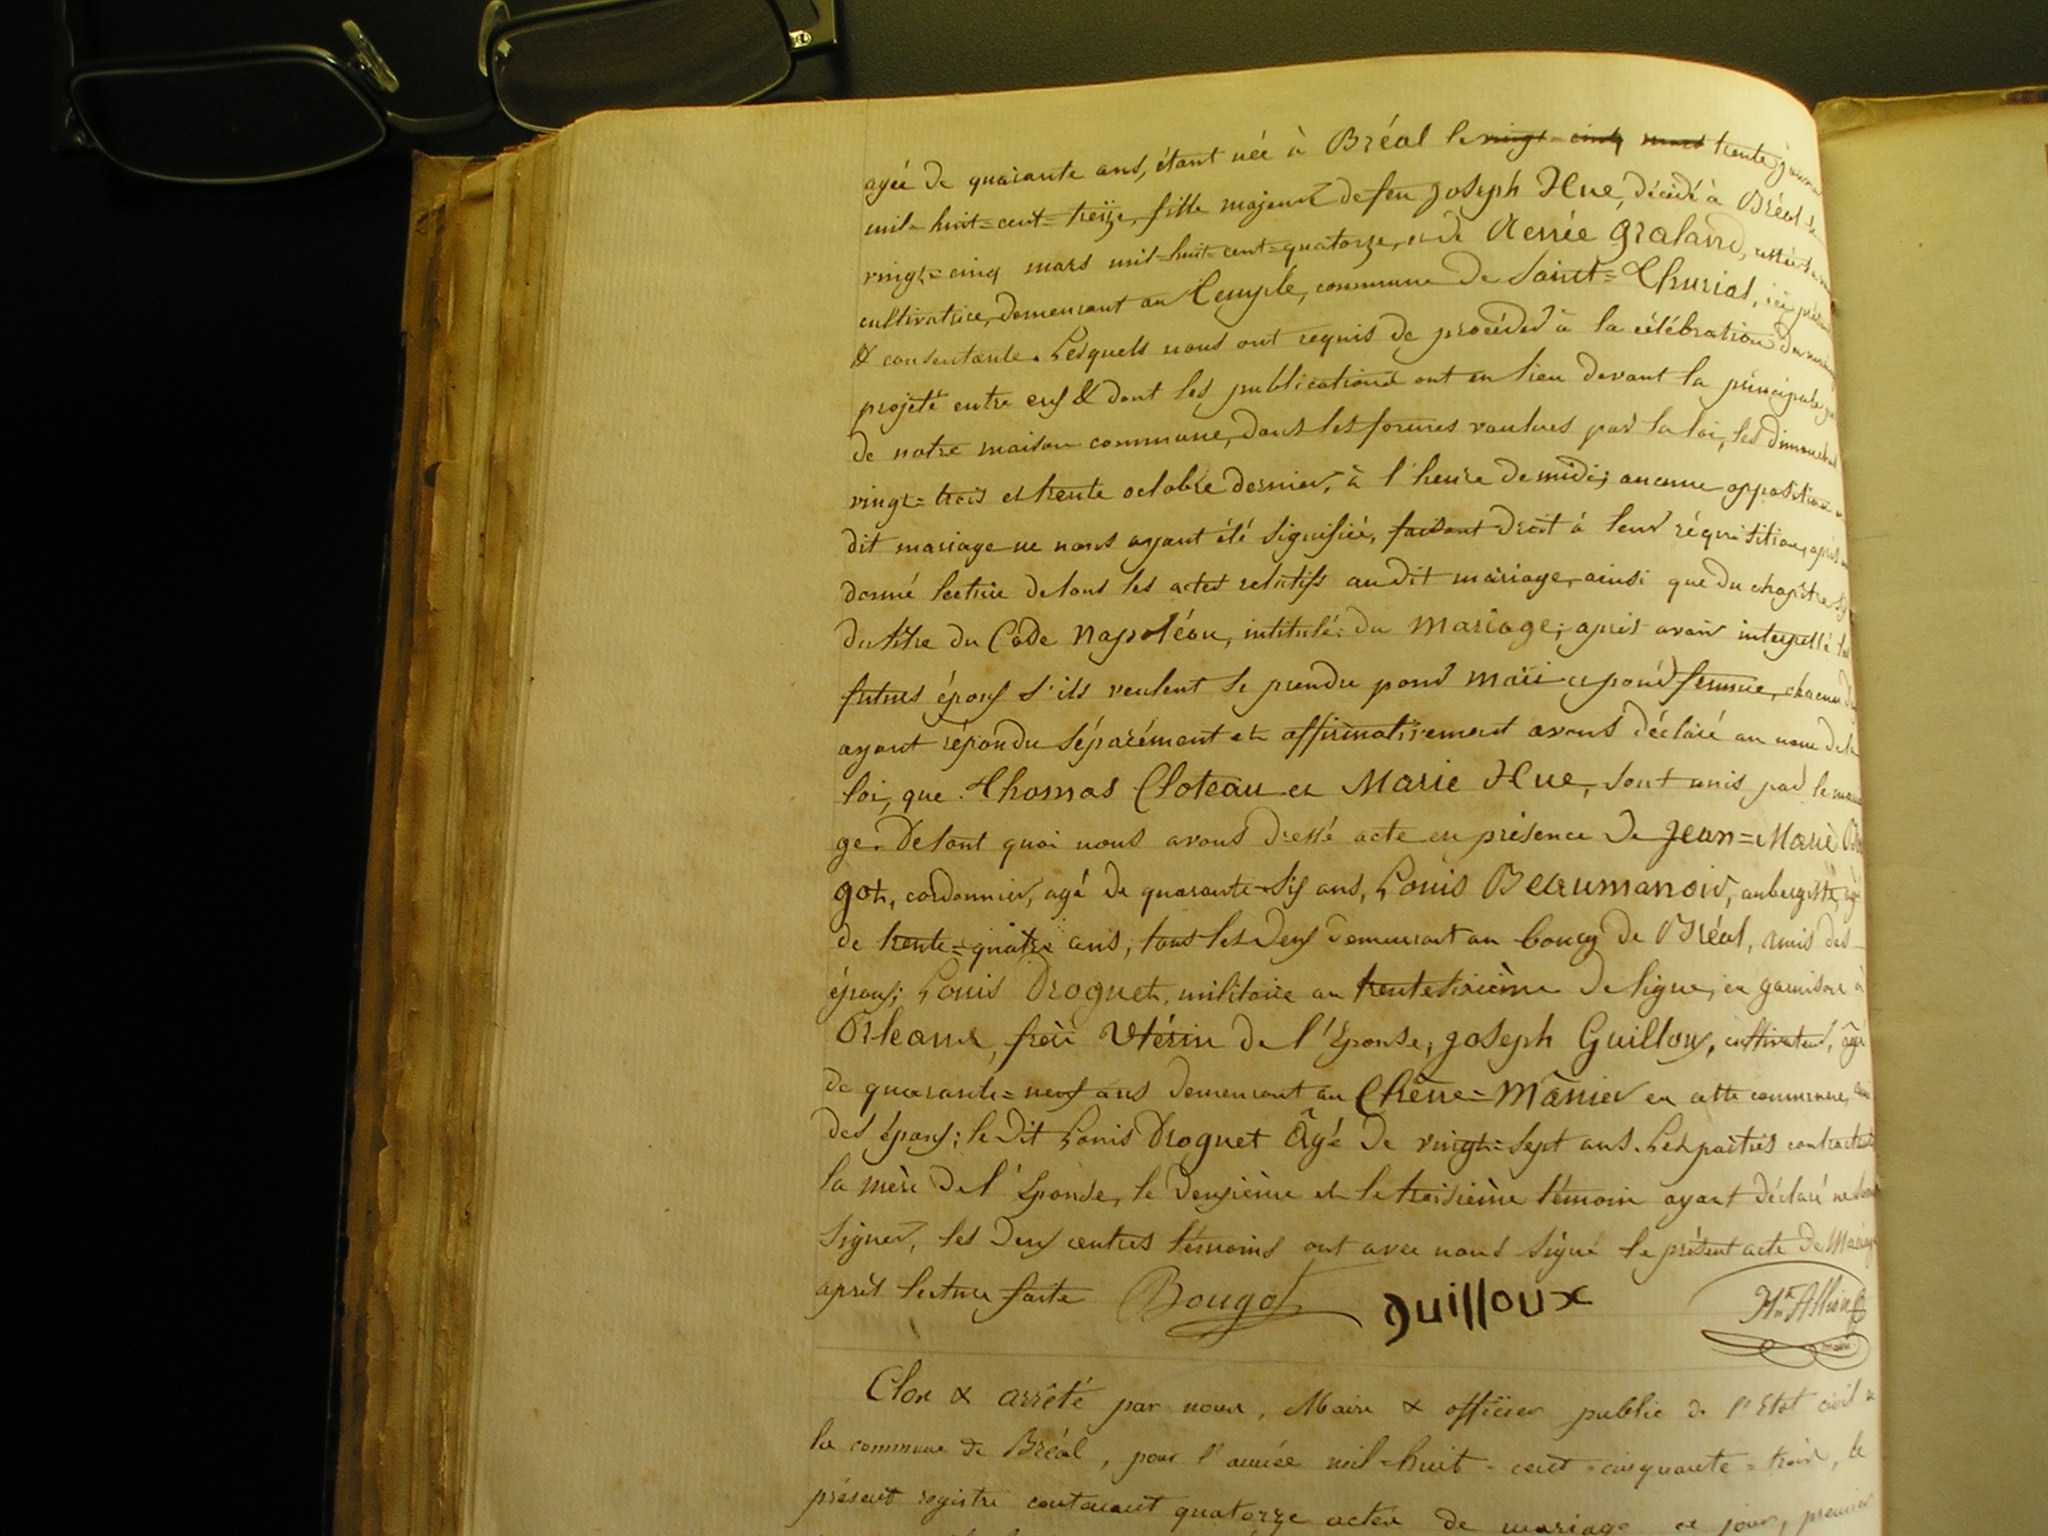 agée de quarante ans, étant née à Bréal le vingt-cinq mars trente janvier
mil-huit=cent=treize, fille majeure de feu Joseph Hue, décédé à Bréal le
vingt=cinq mars mil=huit=cent=quatorze, et de Renée Graland,
cultivatrice, demeurant au Temple, commune de Saint=Thurial, ici présente
& consentante. Lesquels nous ont requis de procéder à la célébration du mariage
projeté entre eux & dont les publications ont eu lieu devant la principale porte
de notre maison commune, dans les formes voulues par la loi, les dimanches
vingt=trois et trente octobre dernier, à l'heure de midi; aucune opposition au
dit mariage ne nous ayant été signifiée, faisant droit à leur réquisition, après avoir
donné lecture de tous les actes relatifs audit mariage, ainsi que du chapitre six
du titre du Code Napoléon, intitulé: du Mariage; après avoir interpellé les
futurs époux s'ils veulent se prendre pour mari et pour femme, chacun d'eux
ayant répondu séparément et affirmativement avons déclaré au nom de la
loi, que Thomas Cloteau et Marie Hue, sont unis par le maria
ge. De tout quoi nous avons dressé acte en présence de Jean=Marie Bou
got, cordonnier, agé de quarante-six ans, Louis Beaumanoir, aubergiste, âgé
de trente=quatre ans, tous les deux demeurant au bourg de Bréal, amis des
époux; Louis Droguet, militaire au trente sixième de ligne, en garnison à
Orleans, frère Utérin de l'épouse, Joseph Guilloux, cultivateur, âgé
de quarante=neuf ans demeurant au Chêne=Mânier en cette commune, ami
des époux; le dit Louis Droguet Âgé de vingt=sept ans. Les parties contractantes
la mère de l'épouse, le deuxième et le troisième témoin ayant déclaré ne savoir
signer, les deux autres témoins ont avec nous signé le présent acte de Mariage
après lecture faite Bougot Guilloux
Clos & arrêté par nous, Maire & officier public de l'Etat civil de
la commune de Bréal, pour l'année mil-huit-cent-cinquante-trois, le
présent registre contenant quatorze actes de mariage ce jour, premier